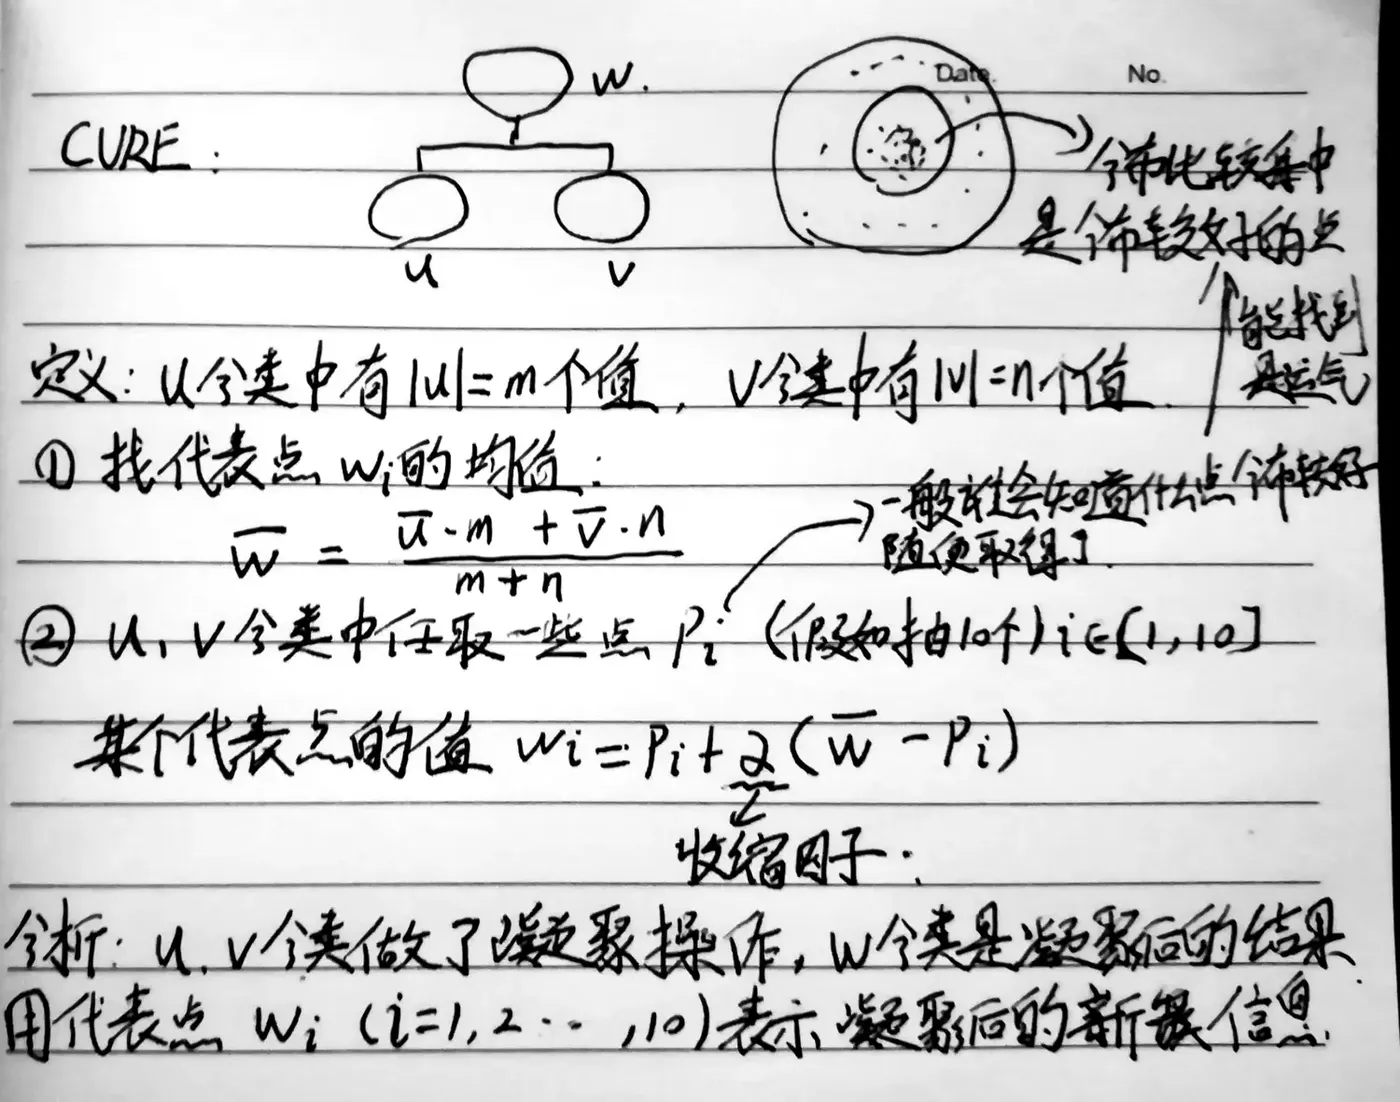 Date.
No.
w.
CURE:
u
v
分布比较集中
是分布较好的点
能找到
是运气
定义: u分类中有|u|=m个值, v分类中有|v|=n个值.
① 找代表点 wi的均值:
w̅ = (u̅·m + v̅·n) / (m+n)
一般谁会知道什么点分布较好
随便取得了.
② u, v分类中任取一些点 Pi (假如抽10个) i∈[1,10]
某个代表点的值 wi = Pi + α(w̅ - Pi)
收缩因子.
分析: u, v分类做了凝聚操作, w分类是凝聚后的结果
用代表点 wi (i=1,2…,10)表示凝聚后的新信息.